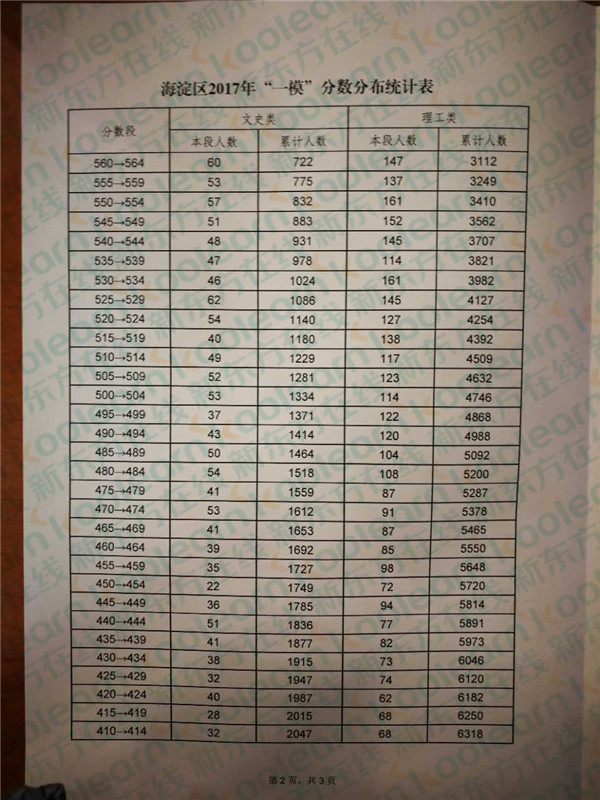 海淀区2017年“一模”分数分布统计表
分数段 文史类 理工类
本段人数 累计人数 本段人数 累计人数
560→564 60 722 147 3112
555→559 53 775 137 3249
550→554 57 832 161 3410
545→549 51 883 152 3562
540→544 48 931 145 3707
535→539 47 978 114 3821
530→534 46 1024 161 3982
525→529 62 1086 145 4127
520→524 54 1140 127 4254
515→519 40 1180 138 4392
510→514 49 1229 117 4509
505→509 52 1281 123 4632
500→504 53 1334 114 4746
495→499 37 1371 122 4868
490→494 43 1414 120 4988
485→489 50 1464 104 5092
480→484 54 1518 108 5200
475→479 41 1559 87 5287
470→474 53 1612 91 5378
465→469 41 1653 87 5465
460→464 39 1692 85 5550
455→459 35 1727 98 5648
450→454 22 1749 72 5720
445→449 36 1785 94 5814
440→444 51 1836 77 5891
435→439 41 1877 82 5973
430→434 38 1915 73 6046
425→429 32 1947 74 6120
420→424 40 1987 62 6182
415→419 28 2015 68 6250
410→414 32 2047 68 6318
第2页，共3页
koolearn 新东方在线